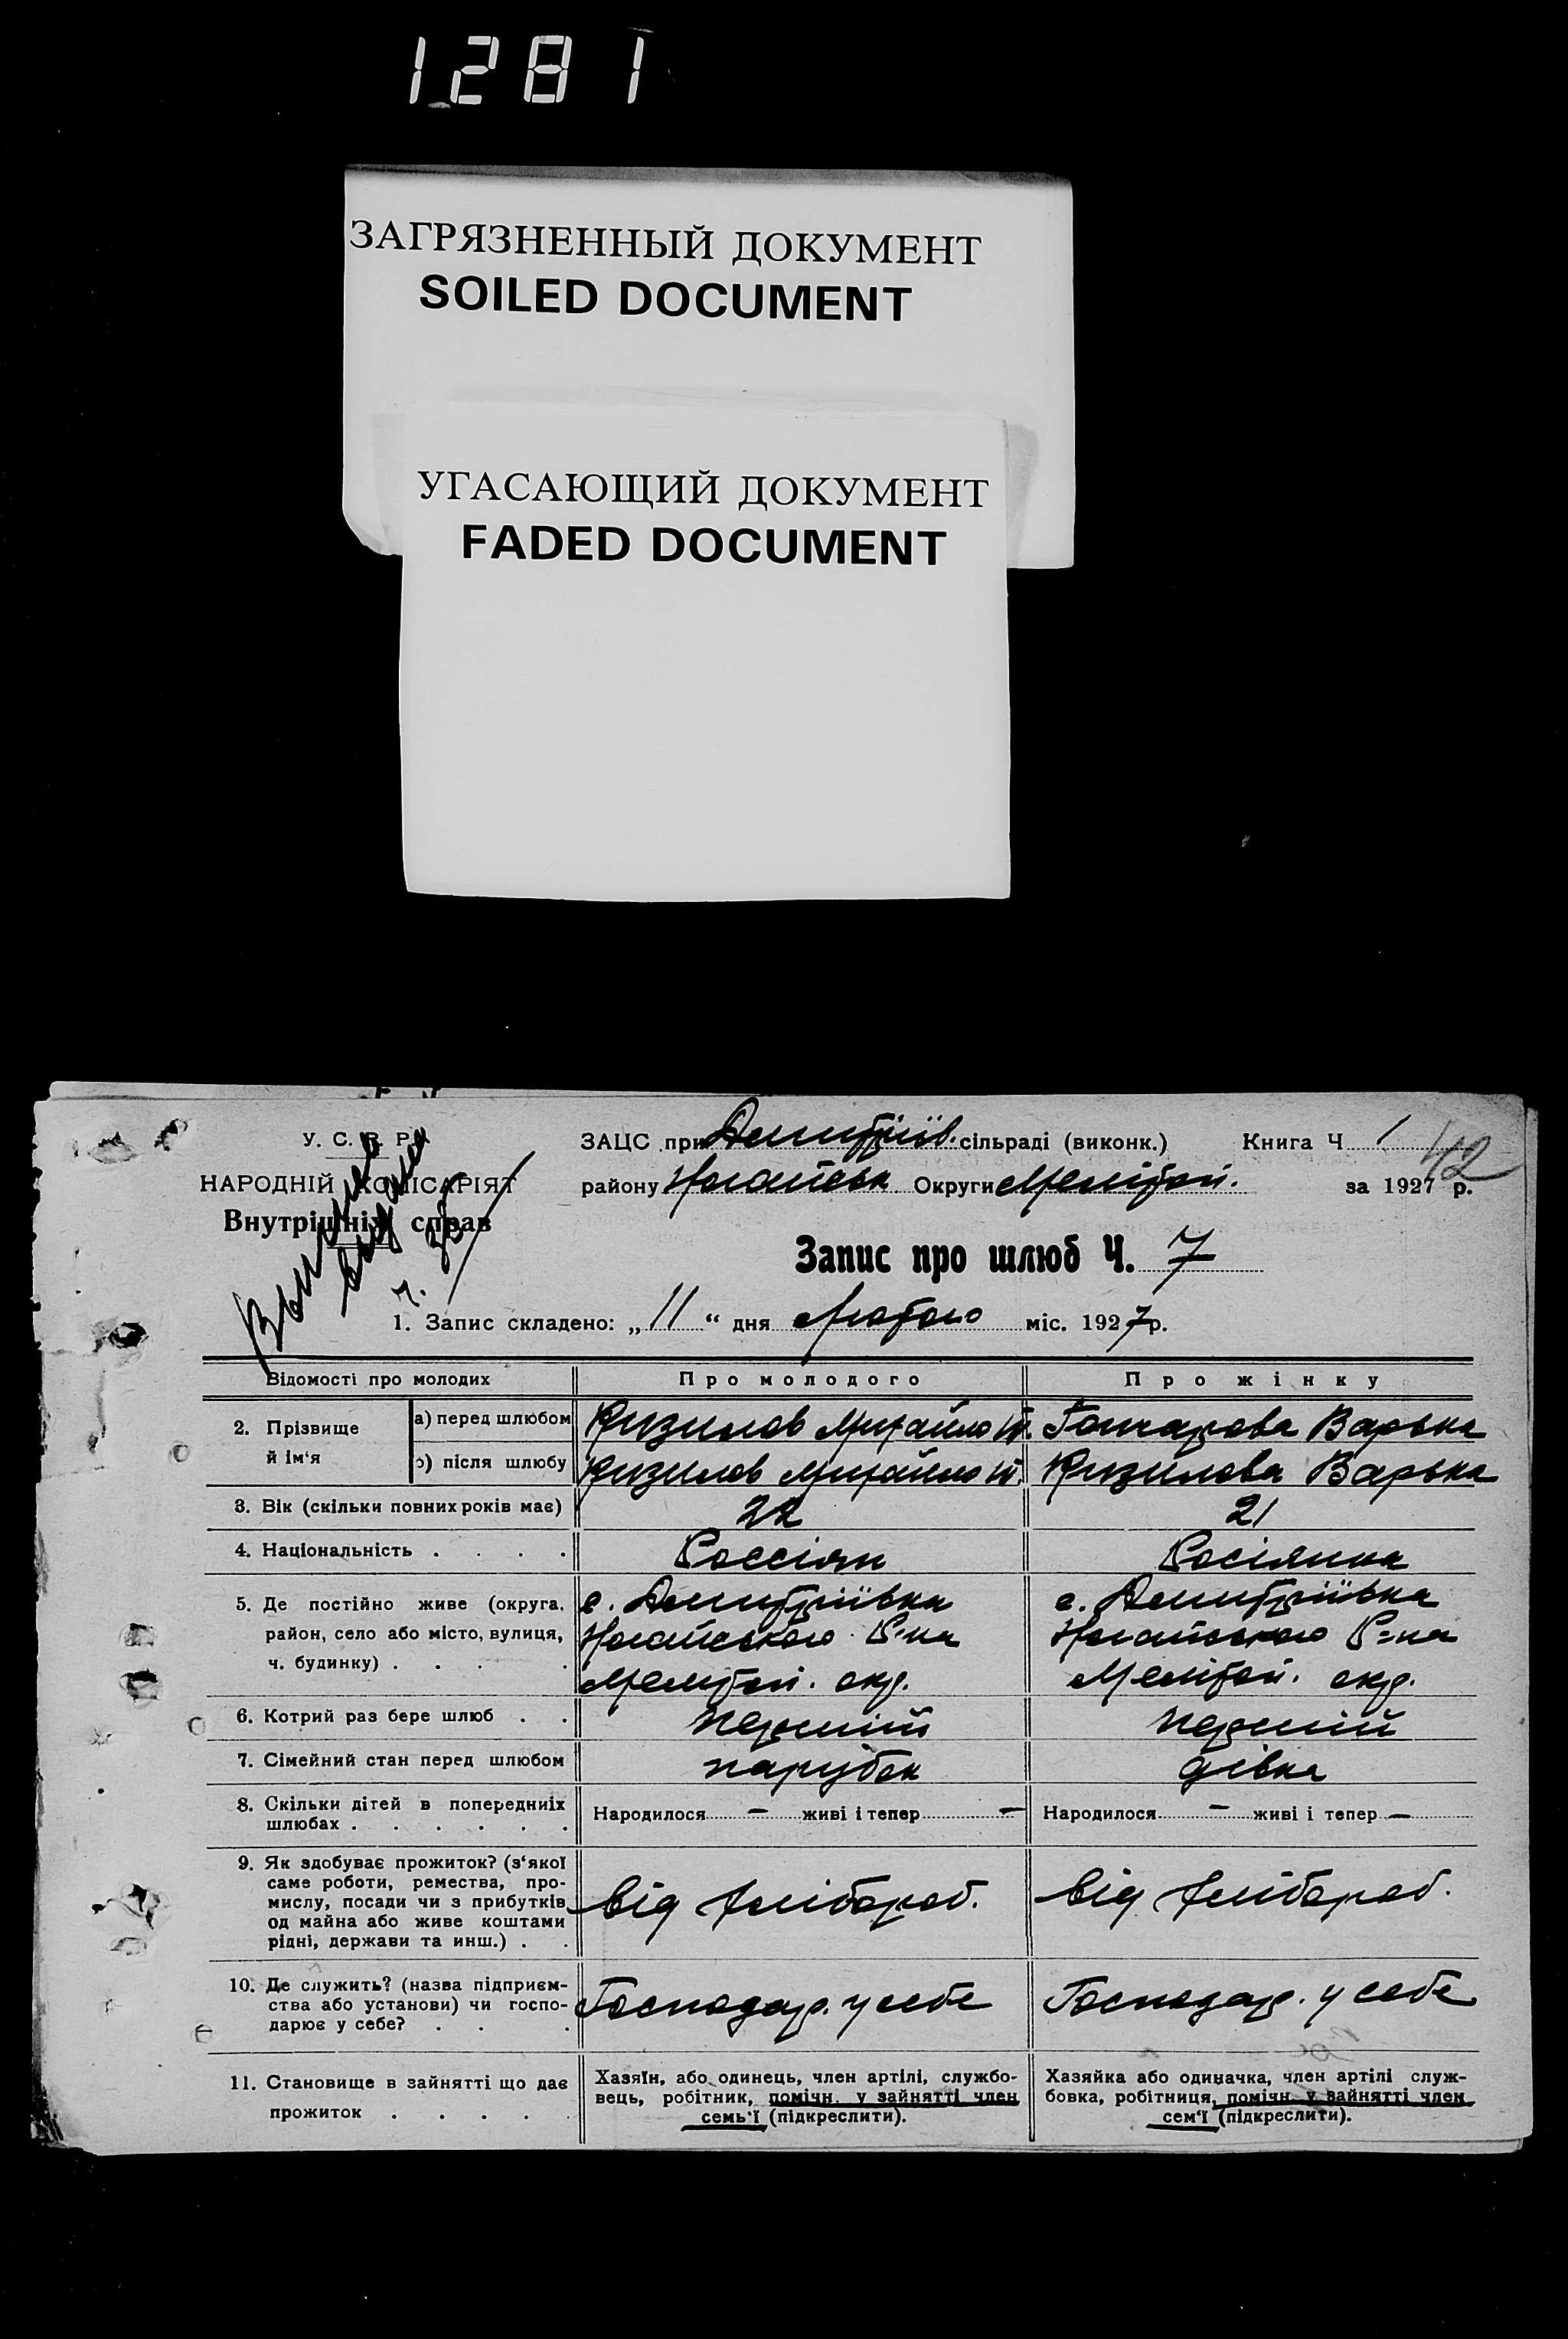 1281
ЗАГРЯЗНЕННЫЙ ДОКУМЕНТ
SOILED DOCUMENT
УГАСАЮЩИЙ ДОКУМЕНТ
FADED DOCUMENT
У. С. Р. Р.
НАРОДНІЙ КОМІСАРІЯТ
Внутрішніх справ
ЗАЦС при Дмитріїв. сільраді (виконк.) Книга Ч 1
42
району Ногайськ Округи Мелітоп. за 1927 р.
Запис про шлюб Ч. 7
1. Запис складено: „11“ дня Лютого міс. 1927 р.
Відомості про молодих Про молодого Про жінку
2. Прізвище й ім'я
а) перед шлюбом Кизилов Михайло И. Гончарова Варька
б) після шлюбу Кизилов Михайло И. Кизилова Варька
3. Вік (скільки повних років має) 22 21
4. Національність . . . . Россіян Росіянка
5. Де постійно живе (округа, с. Дмитріївка с. Дмитріївка
район, село або місто, вулиця, Ногайського Р-на Ногайського Р=на
ч. будинку) . . . . Мелітоп. окр. Мелітоп. окр.
6. Котрий раз бере шлюб . . перший перший
7. Сімейний стан перед шлюбом парубок дівка
8. Скільки дітей в попередниіх Народилося — живі і тепер — Народилося — живі і тепер —
шлюбах . . . . . .
9. Як здобуває прожиток? (з'якої
саме роботи, ремества, про-
мислу, посади чи з прибутків від хлібороб. від хлібороб.
од майна або живе коштами
рідні, держави та инш.) . .
10. Де служить? (назва підприєм-
ства або установи) чи госпо- Господар. у себе Господар. у себе
дарює у себе? . . .
11. Становище в зайнятті що дає Хазяїн, або одинець, член артілі, службо- Хазяйка або одиначка, член артілі служ-
прожиток . . . . . вець, робітник, помічн. у зайнятті член бовка, робітниця, помічн. у зайнятті член
семь'ї (підкреслити). сем'ї (підкреслити).